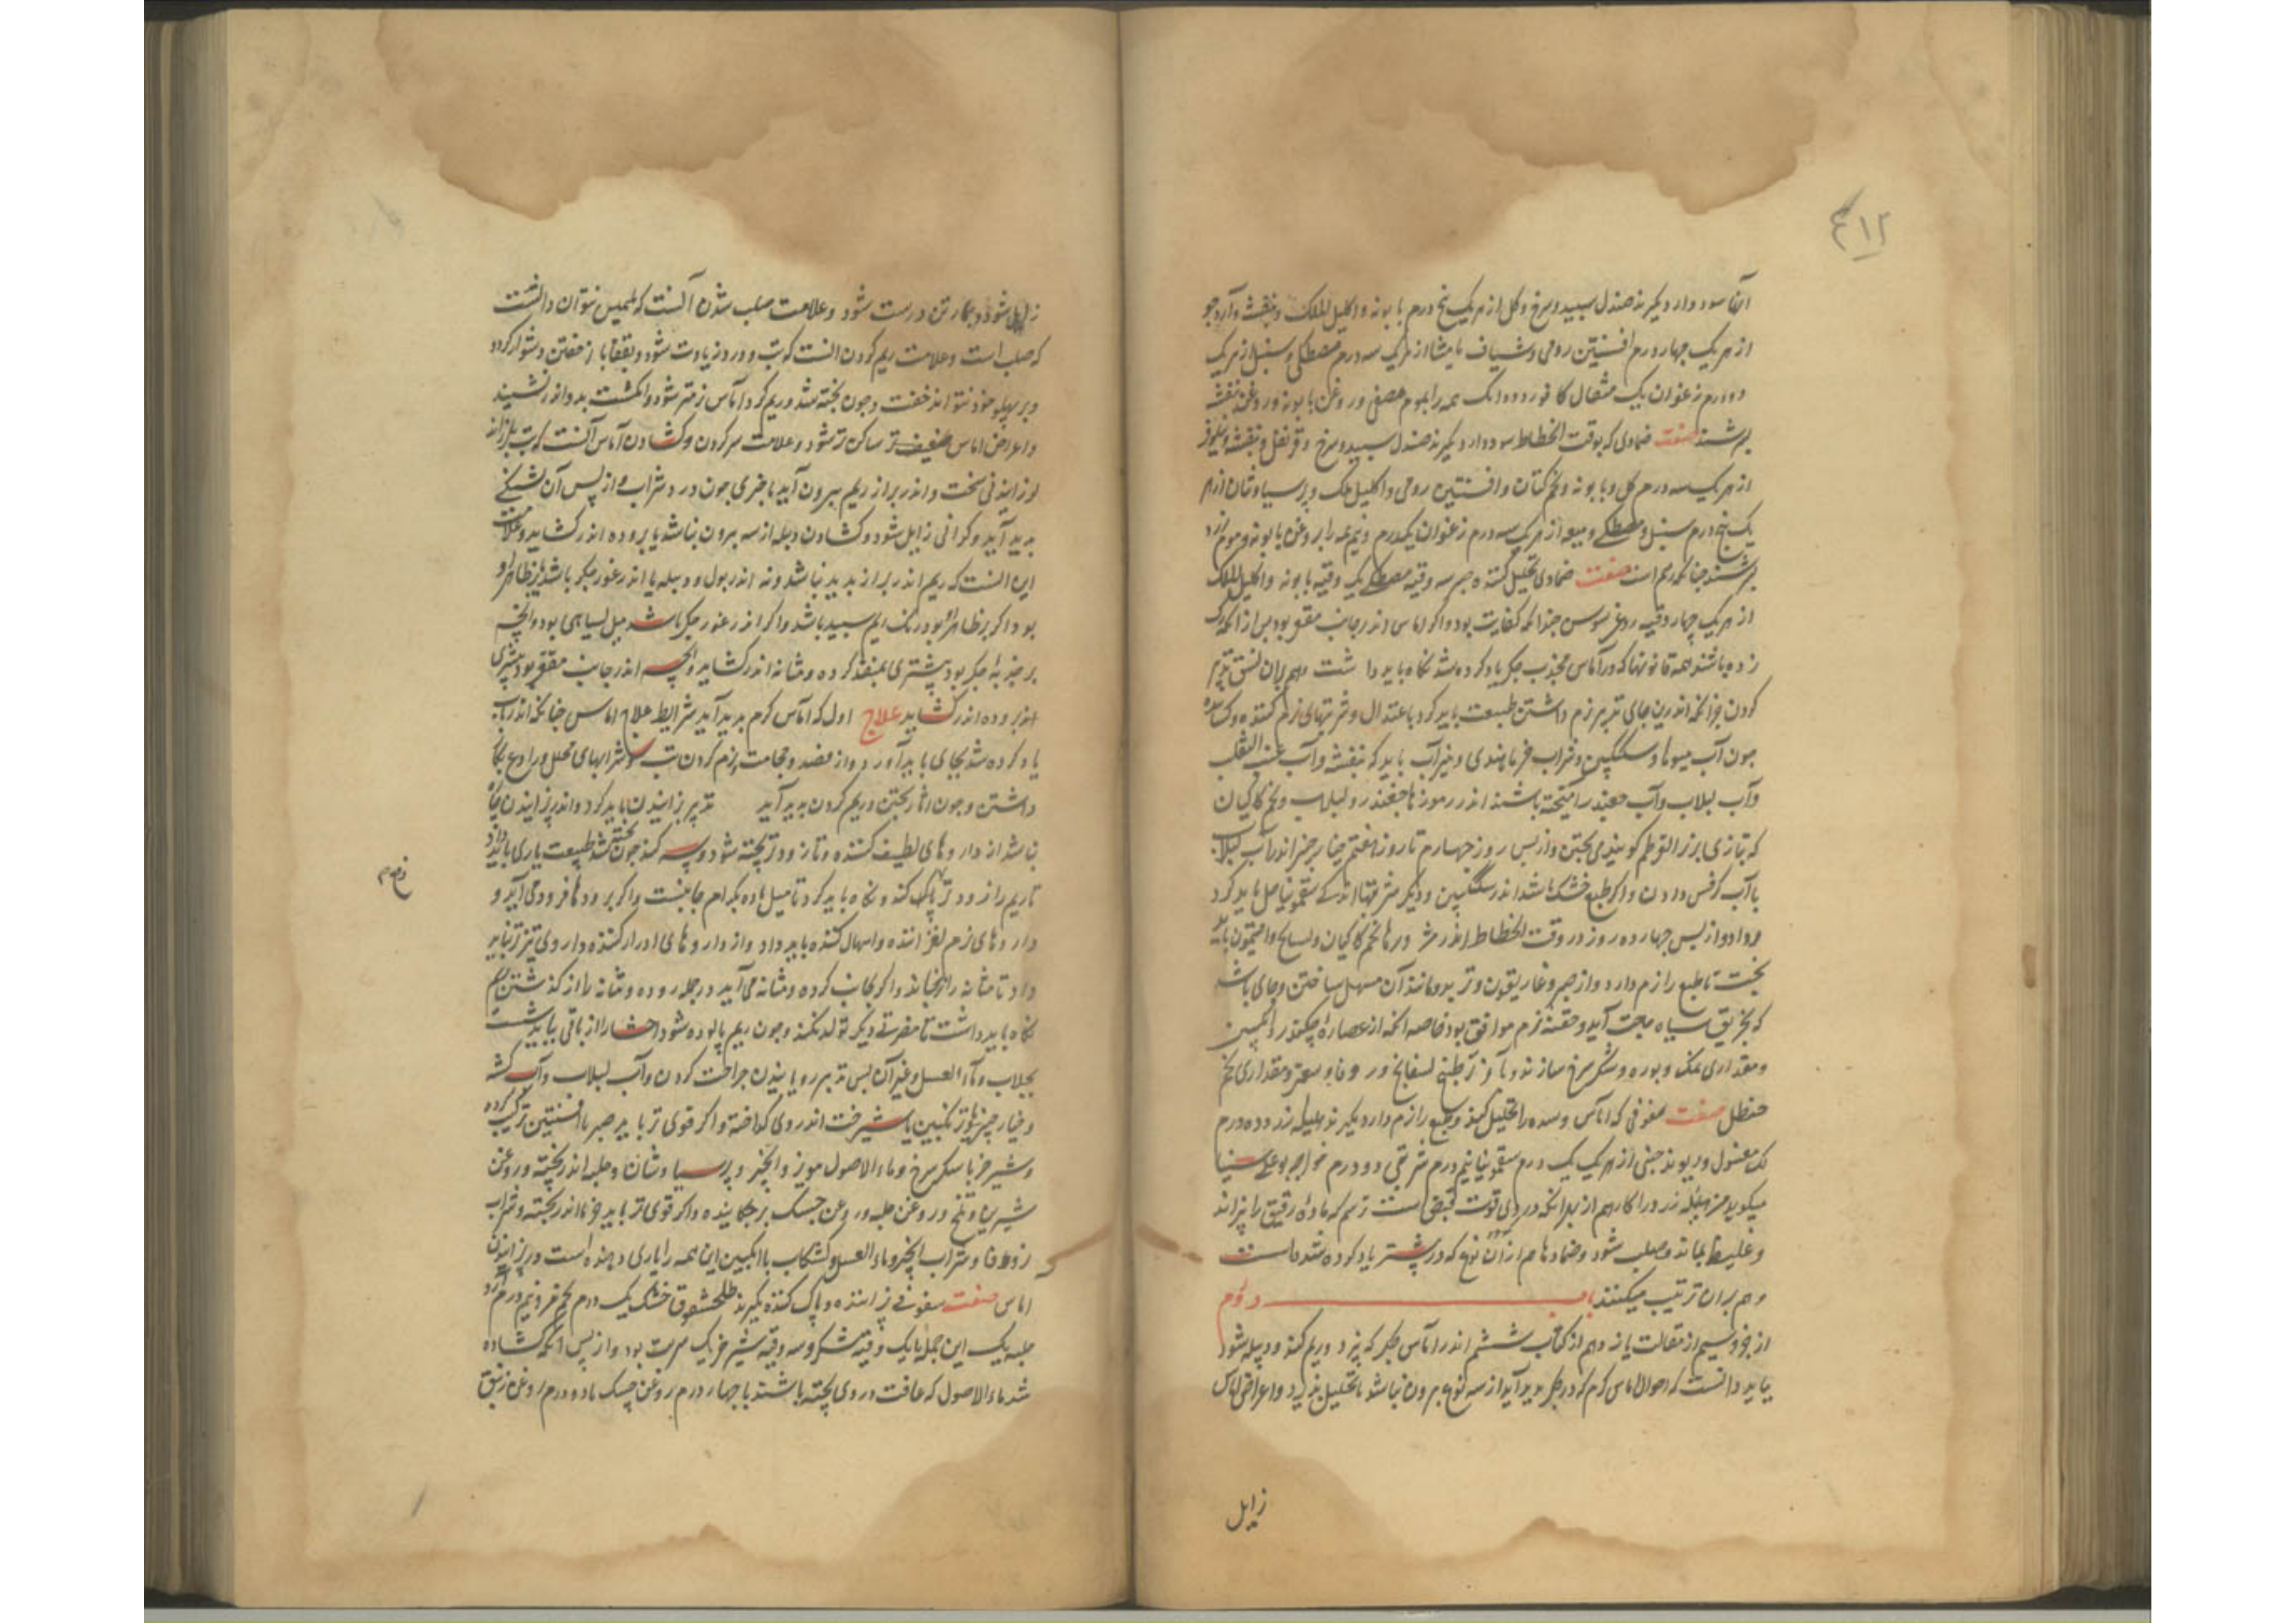 ۴۱۲
آن سود دارد بگیرند صندل سپید و سرخ و گل از هر یک پنج درم بابونه و اکلیل الملک و بنفشه و آرد جو
از هر یک چهار درم افسنتین رومی و شیاف مامیثا از هر یک سه درم مصطکی و سنبل از هر یک
دو درم زعفران یک مثقال کافور دو دانک همه را بموم مصفی و روغن بابونه و روغن بنفشه
بسرشند صفت ضمادی که بوقت انحطاط سود دارد بگیرند صندل سپید و سرخ و قرنفل و بنفشه و نیلوفر
از هر یک سه درم گل و بابونه و تخم کتان و افسنتین رومی و اکلیل ملک و پرسیاوشان از هر
یک پنج درم سنبل و مصطکی و میعه از هر یک سه درم زعفران یکدرم و نیم همه را بروغن بابونه و موم زرد
بسرشند چنانکه رسم است صفت ضمادی تحلیل کننده صبر سه وقیه مصطکی یک وقیه بابونه و اکلیل الملک
از هر یک چهار وقیه روغن سوسن چندانکه کفایت بود و اگر اماس اندر جانب مقعر بود پس از انکه رک
زده باشند همه قانونها که در آماس محدب جگر یاد کرده شد نگاه باید داشت و هم بران نسق تدبیر
کردن جز انکه اندرین جای تدبیر نرم داشتن طبیعت باید کرد باعتدال و شربتهای نرم کننده و کشاینده
چون آب میوها و سکنگبین و شراب خرماهندی و خیرآب باید که بنفشه و آب عنب الثعلب
و آب لبلاب و آب چغندر آمیخته باشند اندر مزورها چغندر و لبلاب و تخم کاکیان
که بتازی بزر القرطم گویند می پختن و از پس روز چهارم تا روز هفتم خیار چنبر اندر آب لبلاب
یا آب کرفس دادن و اگر طبع خشک باشد اندر سکنگبین و دیگر شربتها اندکی سقمونیا حل باید کرد
و داد و از پس چهارده روز در وقت انحطاط اندر مزورها تخم کاکیان و بسفایج و افتیمون باید
پخت تا طبع را نرم دارد و از صبر و غاریقون و تربد و مانند آن مسهل ساختن و جای باشد
که بخربق سیاه حاجت آید و حقنه نرم موافق بود خاصه انکه از عصاره چکندر و انگبین
و مقداری نمک و بوره و شکر سرخ سازند و آخر از طبیخ بسفایج و زوفا و سعتر و مقداری تخم
حنظل صفت سفوفی که اماس و سده را تحلیل کند و طبع را نرم دارد بگیرند هلیله زرد ده درم
لک مغسول و ریوند چینی از هر یک یک درم سقمونیا نیم درم شربتی دو درم خواجه بوعلی سینا
میگوید من هلیله زرد را کارهم از بهر انکه در وی قوت قبض است ترسم که ماده رقیق را بپزاند
و غلیظ بماند و صلب شود و ضمادها هم ازان نوع که در پیشتر یاد کرده شده است
و هم بران ترتیب میکنند باب دوم
از جزو سیم از مقالت یازدهم از کتاب ششم اندر اماس جگر که بپزد و ریم کند و دبیله شود
بباید دانست که احوال اماس گرم که در جگر پدید آید از سه گونه بیرون نباشد یا تحلیل پذیرد و اعراض اماس
زایل
زایل شود و بیمار تن درست شود و علامت صلب شدن آنست که بلمس بتوان دانست
که صلب است و علامت ریم کردن انست که تب و درد زیادت شود و بقفا باز خفتن دشوار گردد
و بر پهلو خود نتواند خفت و چون پخته شد و ریم کرد اماس نرمتر شود و انگشت بدو اندر نشیند
و اعراض اماس ضعیف تر ساکن تر شود و علامت سر کردن و کشادن آماس آنست که تب بلرزاند
لرزانیدنی سخت و اندر براز ریم بیرون آید یا چیزی چون درد شراب و از پس آن سبکی
پدید آید و گرانی زایل شود و کشادن دبیله از سه بیرون نباشد یا بروده اندر کشاید و علامت
این انست که ریم اندر براز پدید نباشد و نه اندر بول و دبیله یا اندر غور جگر باشد یا بر ظاهر او
بود اگر بر ظاهر بود رنک ریم سپید باشد و اگر اندر غور جگر باشد میل بسیاهی بود و انچه
بر حدبه جگر بود بیشتری بمنفذ گرده و مثانه اندر کشاید و انچه اندر جانب مقعر بود بیشتری
اندر روده اندر کشاید علاج اول که اماس گرم پدید آید شرایط علاج اماس چنانکه اندر باب
یاد کرده شد بجای باید آورد و از فصد و حجامت و نرم کردن تب و شرابهای محلل و رادع نگاه
داشتن و چون اثار پختن و ریم کردن پدید آید تدبیر پزانیدن باید کرد و اندر پزانیدن چاره
نباشد از داروهای لطیف کننده و تا زودتر پخته شود و سر کند چون پخته شد طبیعت یاری باید داد
تا ریم را زودتر پاک کند و نگاه باید کرد تا میل ماده بکدام جانبست و اگر برودها فرود می آید و
داروهای نرم لغزاننده و اسهال کننده باید داد و از داروهای ادرار کننده داروی تیزتر نباید
داد تا مثانه را نرنجاند و اگر بجانب گرده و مثانه می آید در جمله روده و مثانه را از گذشتن ریم
نگاه باید داشت تا مضرتی دیگر تولد نکند و چون ریم پالوده شود احشا را از باقی بباید شست
بجلاب و ماء العسل و غیر آن پس تدبیر رویانیدن جراحت کردن و آب لبلاب و آب کشنه
و خیار چنبر و ترنگبین یا شیرخشت اندر وی گداخته و اگر قوی تر باید صبر با افسنتین ترکیب کرده
و شیر خر با شکر سرخ و ماء الاصول مویز و انجیر و پرسیاوشان و حلبه اندر پخته و روغن
شیرین و تلخ و روغن حلبه و روغن حسک بر چکانیده و اگر قوی تر باید خرما اندر پخته و شراب
زوفا و شراب انجیر و ماء العسل و کشکاب با انگبین این همه را یاری دهنده است در پزانیدن
اماس صفت سفوفی پزاننده و پاک کننده بگیرند طلحشوق خشک یک درم تخم مرو نیم درم آرد
حلبه یک این جمله با یک وقیه شکر و سه وقیه شیر خر یک شربت بود و از پس انکه کشاده
شد ماء الاصول که غافت در وی پخته باشند با چهار درم روغن حسک یا دو درم روغن زنبق